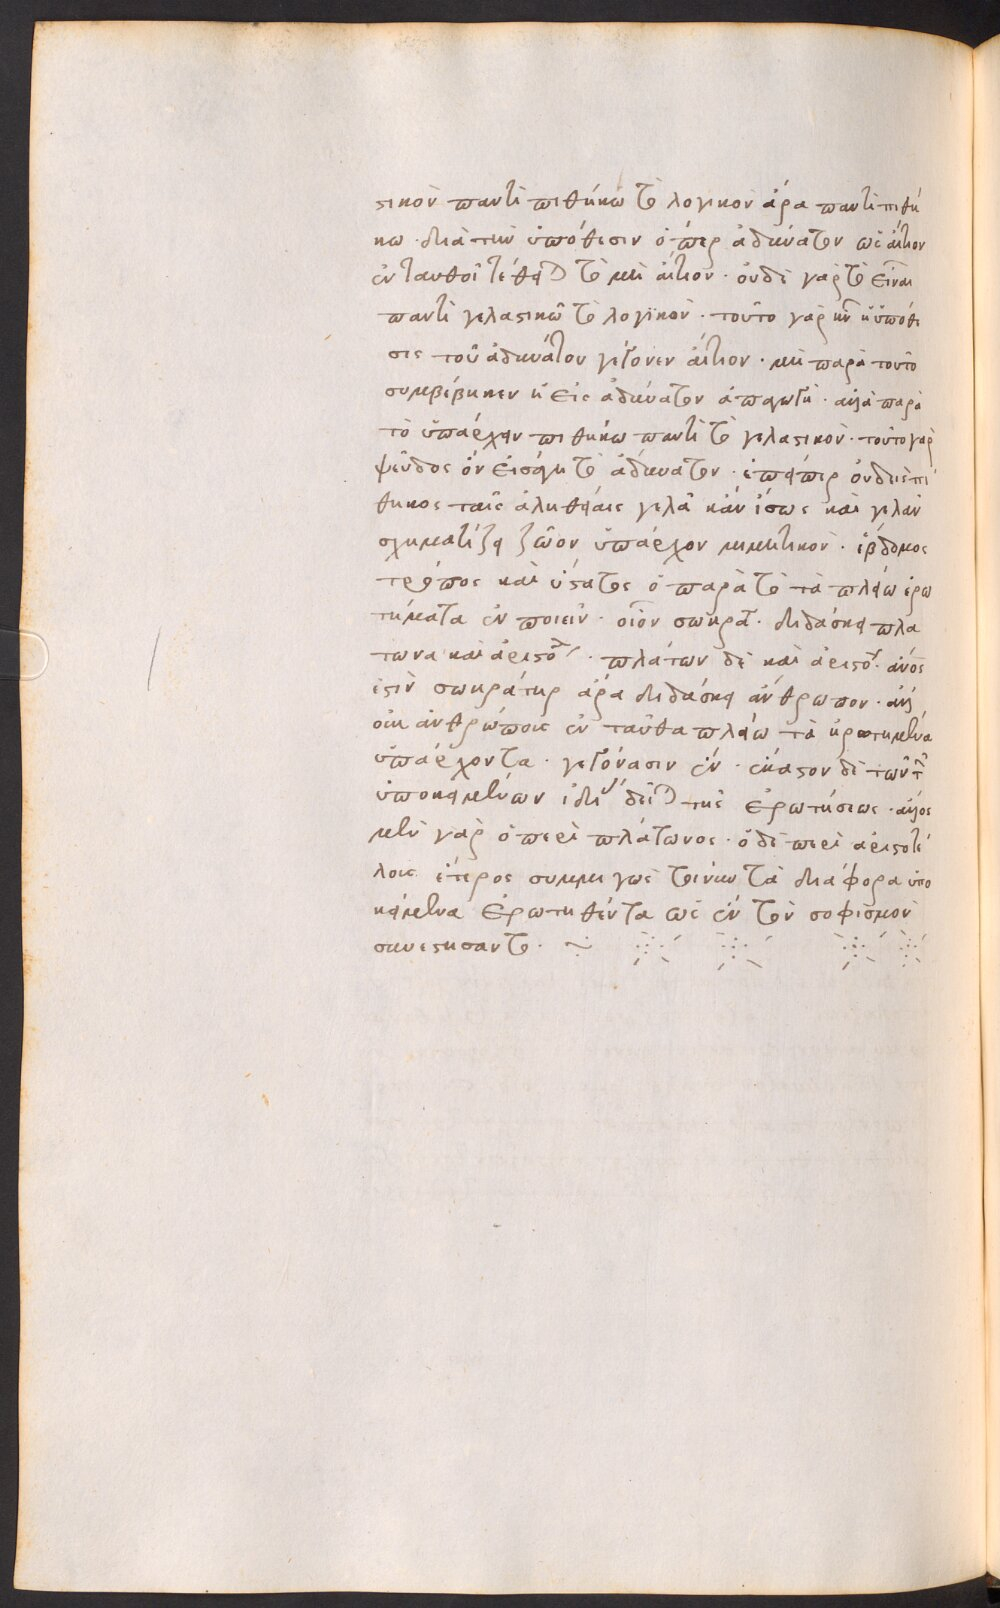 στικὸν παντὶ πιθήκω τὸ λογικὸν ἄρα παντὶ πιθή
κω · διὰ τὴν ὑπόθεσιν ὅπερ ἀδύνατον ὡς αἴτιον
ἐνταυθοῖ τέθειται τὸ μὴ αἴτιον · οὐδὲ γὰρ τὸ εἶναι
παντὶ γελαστικῶ τὸ λογικόν · τοῦτο γὰρ ἦν ἡ ὑπόθε
σις τοῦ ἀδυνάτου γέγονεν αἴτιον · μὴ παρὰ τοῦτο
συμβέβηκεν ἡ εἰς ἀδύνατον ἀπαγωγή · ἀλλὰ παρὰ
τὸ ὑπάρχειν πιθήκω παντὶ τὸ γελαστικόν · τοῦτο γὰρ
ψεῦδος ὂν εἰσάγει τὸ ἀδύνατον · ἐπείπερ οὐδεὶς πί
θηκος ταῖς ἀληθείαις γελᾶ κἂν ἴσως καὶ γελᾶν
σχηματίζει ζῶον ὑπάρχον μιμητικόν · ἕβδομος
τρόπος καὶ ὕστατος ὁ παρὰ τὸ τὰ πλείω ἐρω
τήματα ἓν ποιεῖν · οἷον σωκρατ · διδάσκει πλά
τωνα καὶ ἀριστοτ · πλάτων δὲ καὶ ἀριστοτ · ἄνος
ἐστὶν σωκράτης ἄρα διδάσκει ἄνθρωπον · ἀλλ
οὐκ ἀνθρώπους ἐνταῦθα πλείω τὰ ἠρωτημένα
ὑπάρχοντα · γεγόνασιν ἕν · ἕκαστον δὲ τῶν
ὑποκειμένων ἰδί δεῖται τῆς ἐρωτήσεως · ἄλλος
μὲν γὰρ ὁ περὶ πλάτωνος · ὁ δὲ περὶ ἀριστοτέ
λους ἕτερος συμμιγῶς τοίνυν τὰ διάφορα ὑπο
κείμενα ἐρωτηθέντα ὡς ἓν τὸν σοφισμὸν
συνεστήσαντο · ~